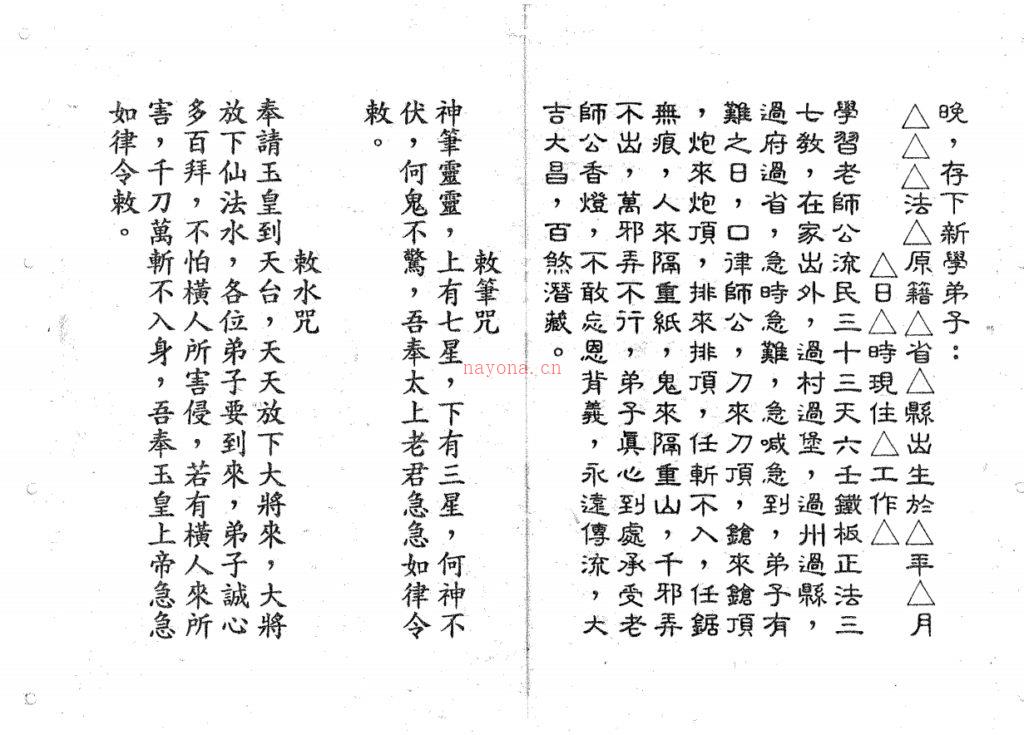 晚，存下新學弟子：
△△△法△原籍△省△縣出生於△年△月
△日△時現住△工作△
學習老師公流民三十三天六壬鐵板正法三
七教，在家出外，過村過堡，過州過縣，
過府過省，急時急難，急喊急到，弟子有
難之日，口律師公，刀來刀頂，鎗來鎗頂
，炮來炮頂，排來排頂，任斬不入，任鋸
無痕，人來隔重紙，鬼來隔重山，千邪弄
不出，萬邪弄不行，弟子眞心到處承受老
師公香燈，不敢忘恩背義，永遠傳流，大
吉大昌，百煞潛藏。
敕筆咒
神筆靈靈，上有七星，下有三星，何神不
伏，何鬼不驚，吾奉太上老君急急如律令
敕。
敕水咒
奉請玉皇到天台，天天放下大將來，大將
放下仙法水，各位弟子要到來，弟子誠心
多百拜，不怕橫人所害侵，若有橫人來所
害，千刀萬斬不入身，吾奉玉皇上帝急急
如律令敕。
nayona.cn